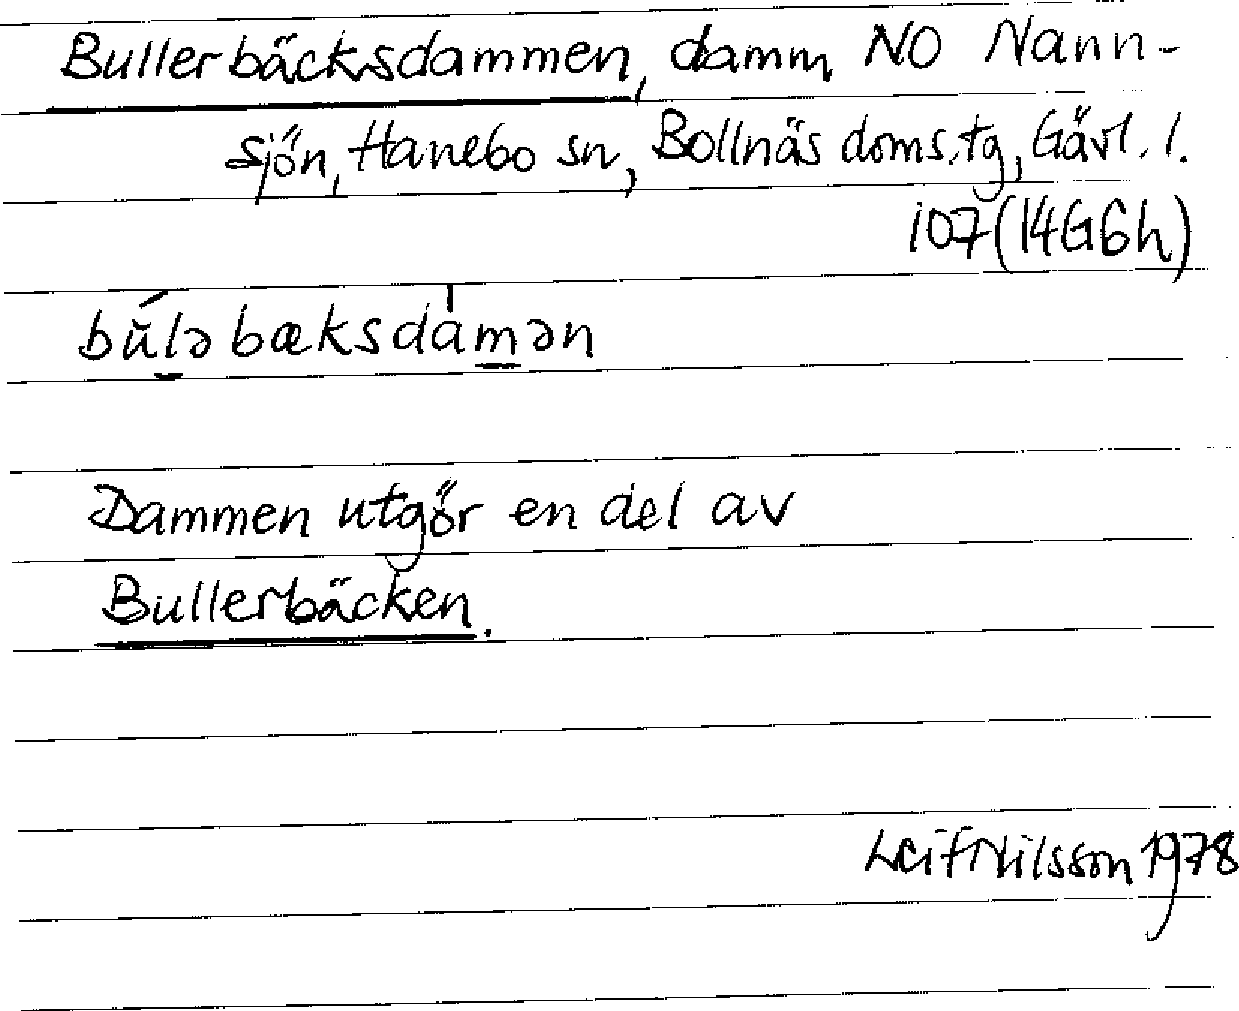 Bullerbäcksdammen, damm NO Nann-
sjön, Hanebo sn, Bollnäs doms.tg, Gävl. l.
107 (14G6h)
bŭ́ləbæksdàmən
Dammen utgör en del av
Bullerbäcken.
Leif Nilsson 1978